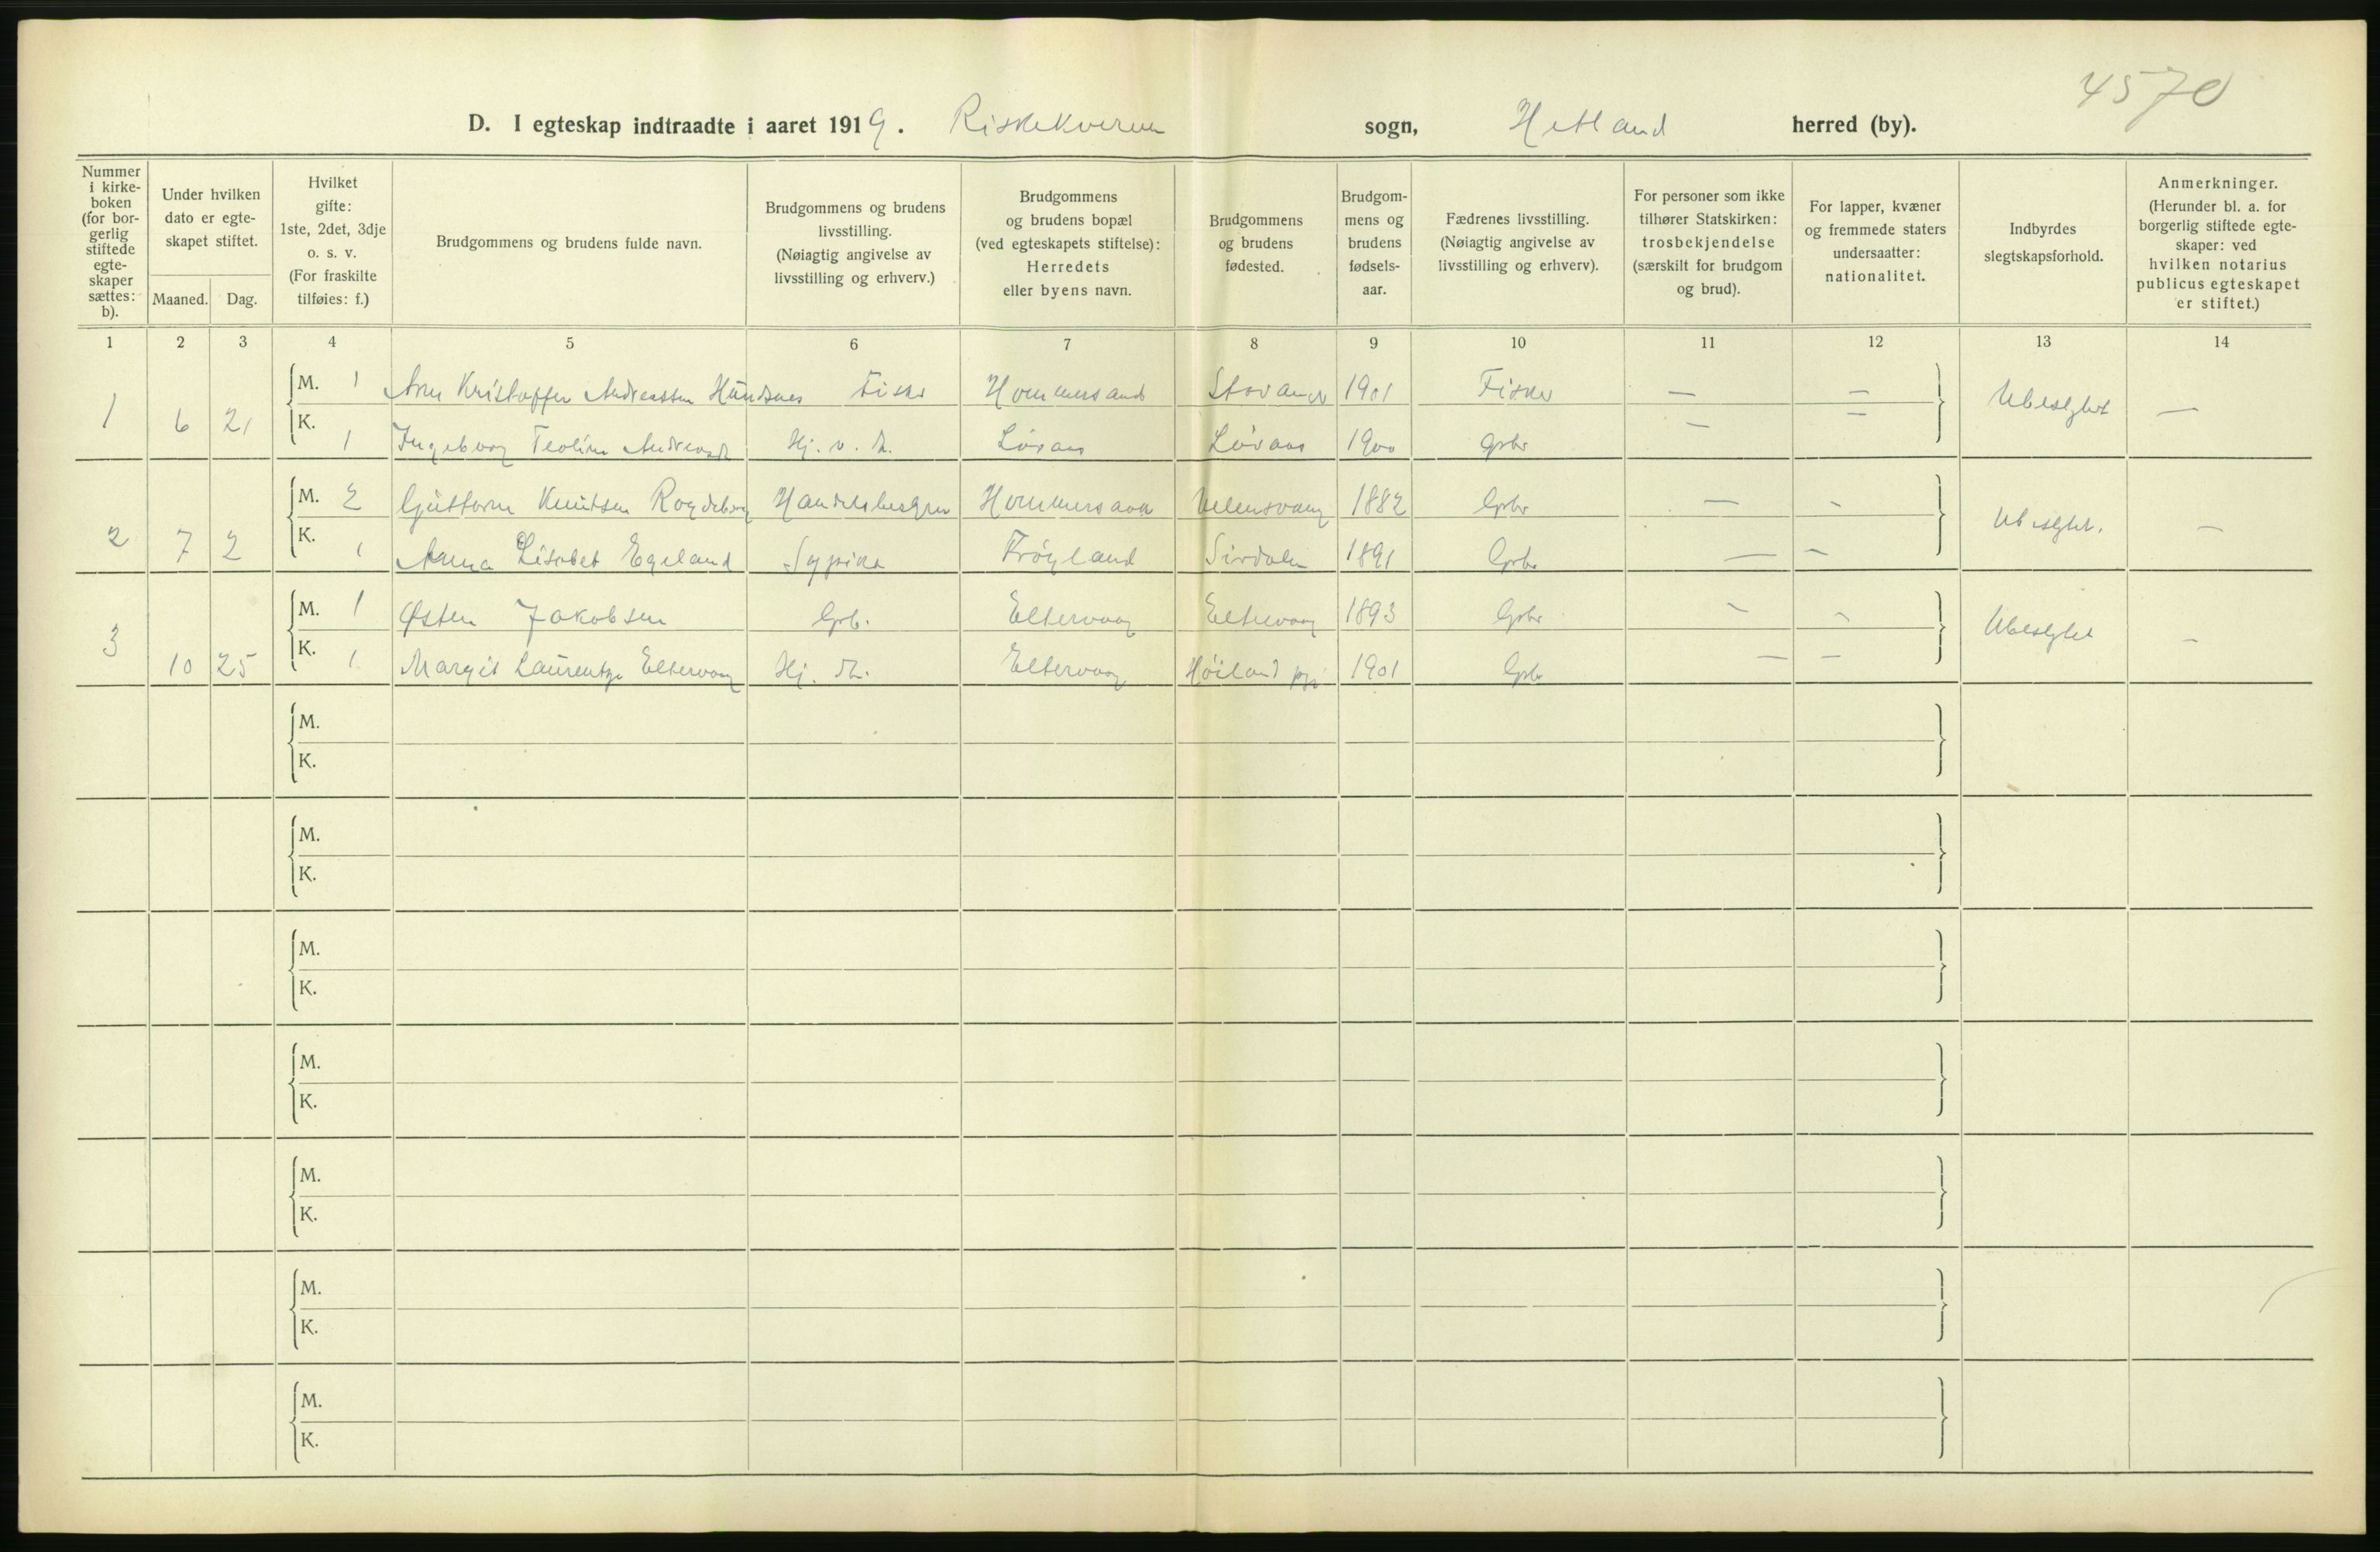 4570
D. I egteskap indtraadte i aaret 1919. Riskekvernen sogn, Hetland herred (by).
Nummer i kirke-boken (for bor-gerlig stiftede egte-skaper sættes: b).
Under hvilken dato er egte-skapet stiftet.
Maaned. Dag.
Hvilket gifte: 1ste, 2det, 3dje o. s. v. (For fraskilte tilføies: f.)
Brudgommens og brudens fulde navn.
Brudgommens og brudens livsstilling. (Nøiagtig angivelse av livsstilling og erhverv.)
Brudgommens og brudens bopæl (ved egteskapets stiftelse): Herredets eller byens navn.
Brudgommens og brudens fødested.
Brudgom-mens og brudens fødsels-aar.
Fædrenes livsstilling. (Nøiagtig angivelse av livsstilling og erhverv).
For personer som ikke tilhører Statskirken: trosbekjendelse (særskilt for brudgom og brud).
For lapper, kvæner og fremmede staters undersaatter: nationalitet.
Indbyrdes slegtskapsforhold.
Anmerkninger. (Herunder bl. a. for borgerlig stiftede egte-skaper: ved hvilken notarius publicus egteskapet er stiftet.)
1 2 3 4 5 6 7 8 9 10 11 12 13 14
M. 1 Arne Kristoffer Andreassen Hundsnes Fisker Hommersand 1901 Fisker — —
1 6 21 Ubeslgtet —
K. 1 Ingeborg Teoline Hj. v. M. Løvaas Løvaas 1900 Grbr — —
M. 2 Guttorm Knutsen Handelsbestyrer Hommersand Ullensvang 1882 Grbr — —
2 7 2 Ubeslgtet. —
K. 1 Anna Lisabet Egeland Sypike Frøyland Sirdalen 1891 Grbr — —
M. 1 Østen Jakobsen Grb. Eltervaag Eltervaag 1893 Grbr — —
3 10 25 Ubeslgtet —
K. 1 Margit Laurentze Eltervaag Hj. M. Eltervaag Høiland 1901 Grbr — —
M.
K.
M.
K.
M.
K.
M.
K.
M.
K.
M.
K.
M.
K.